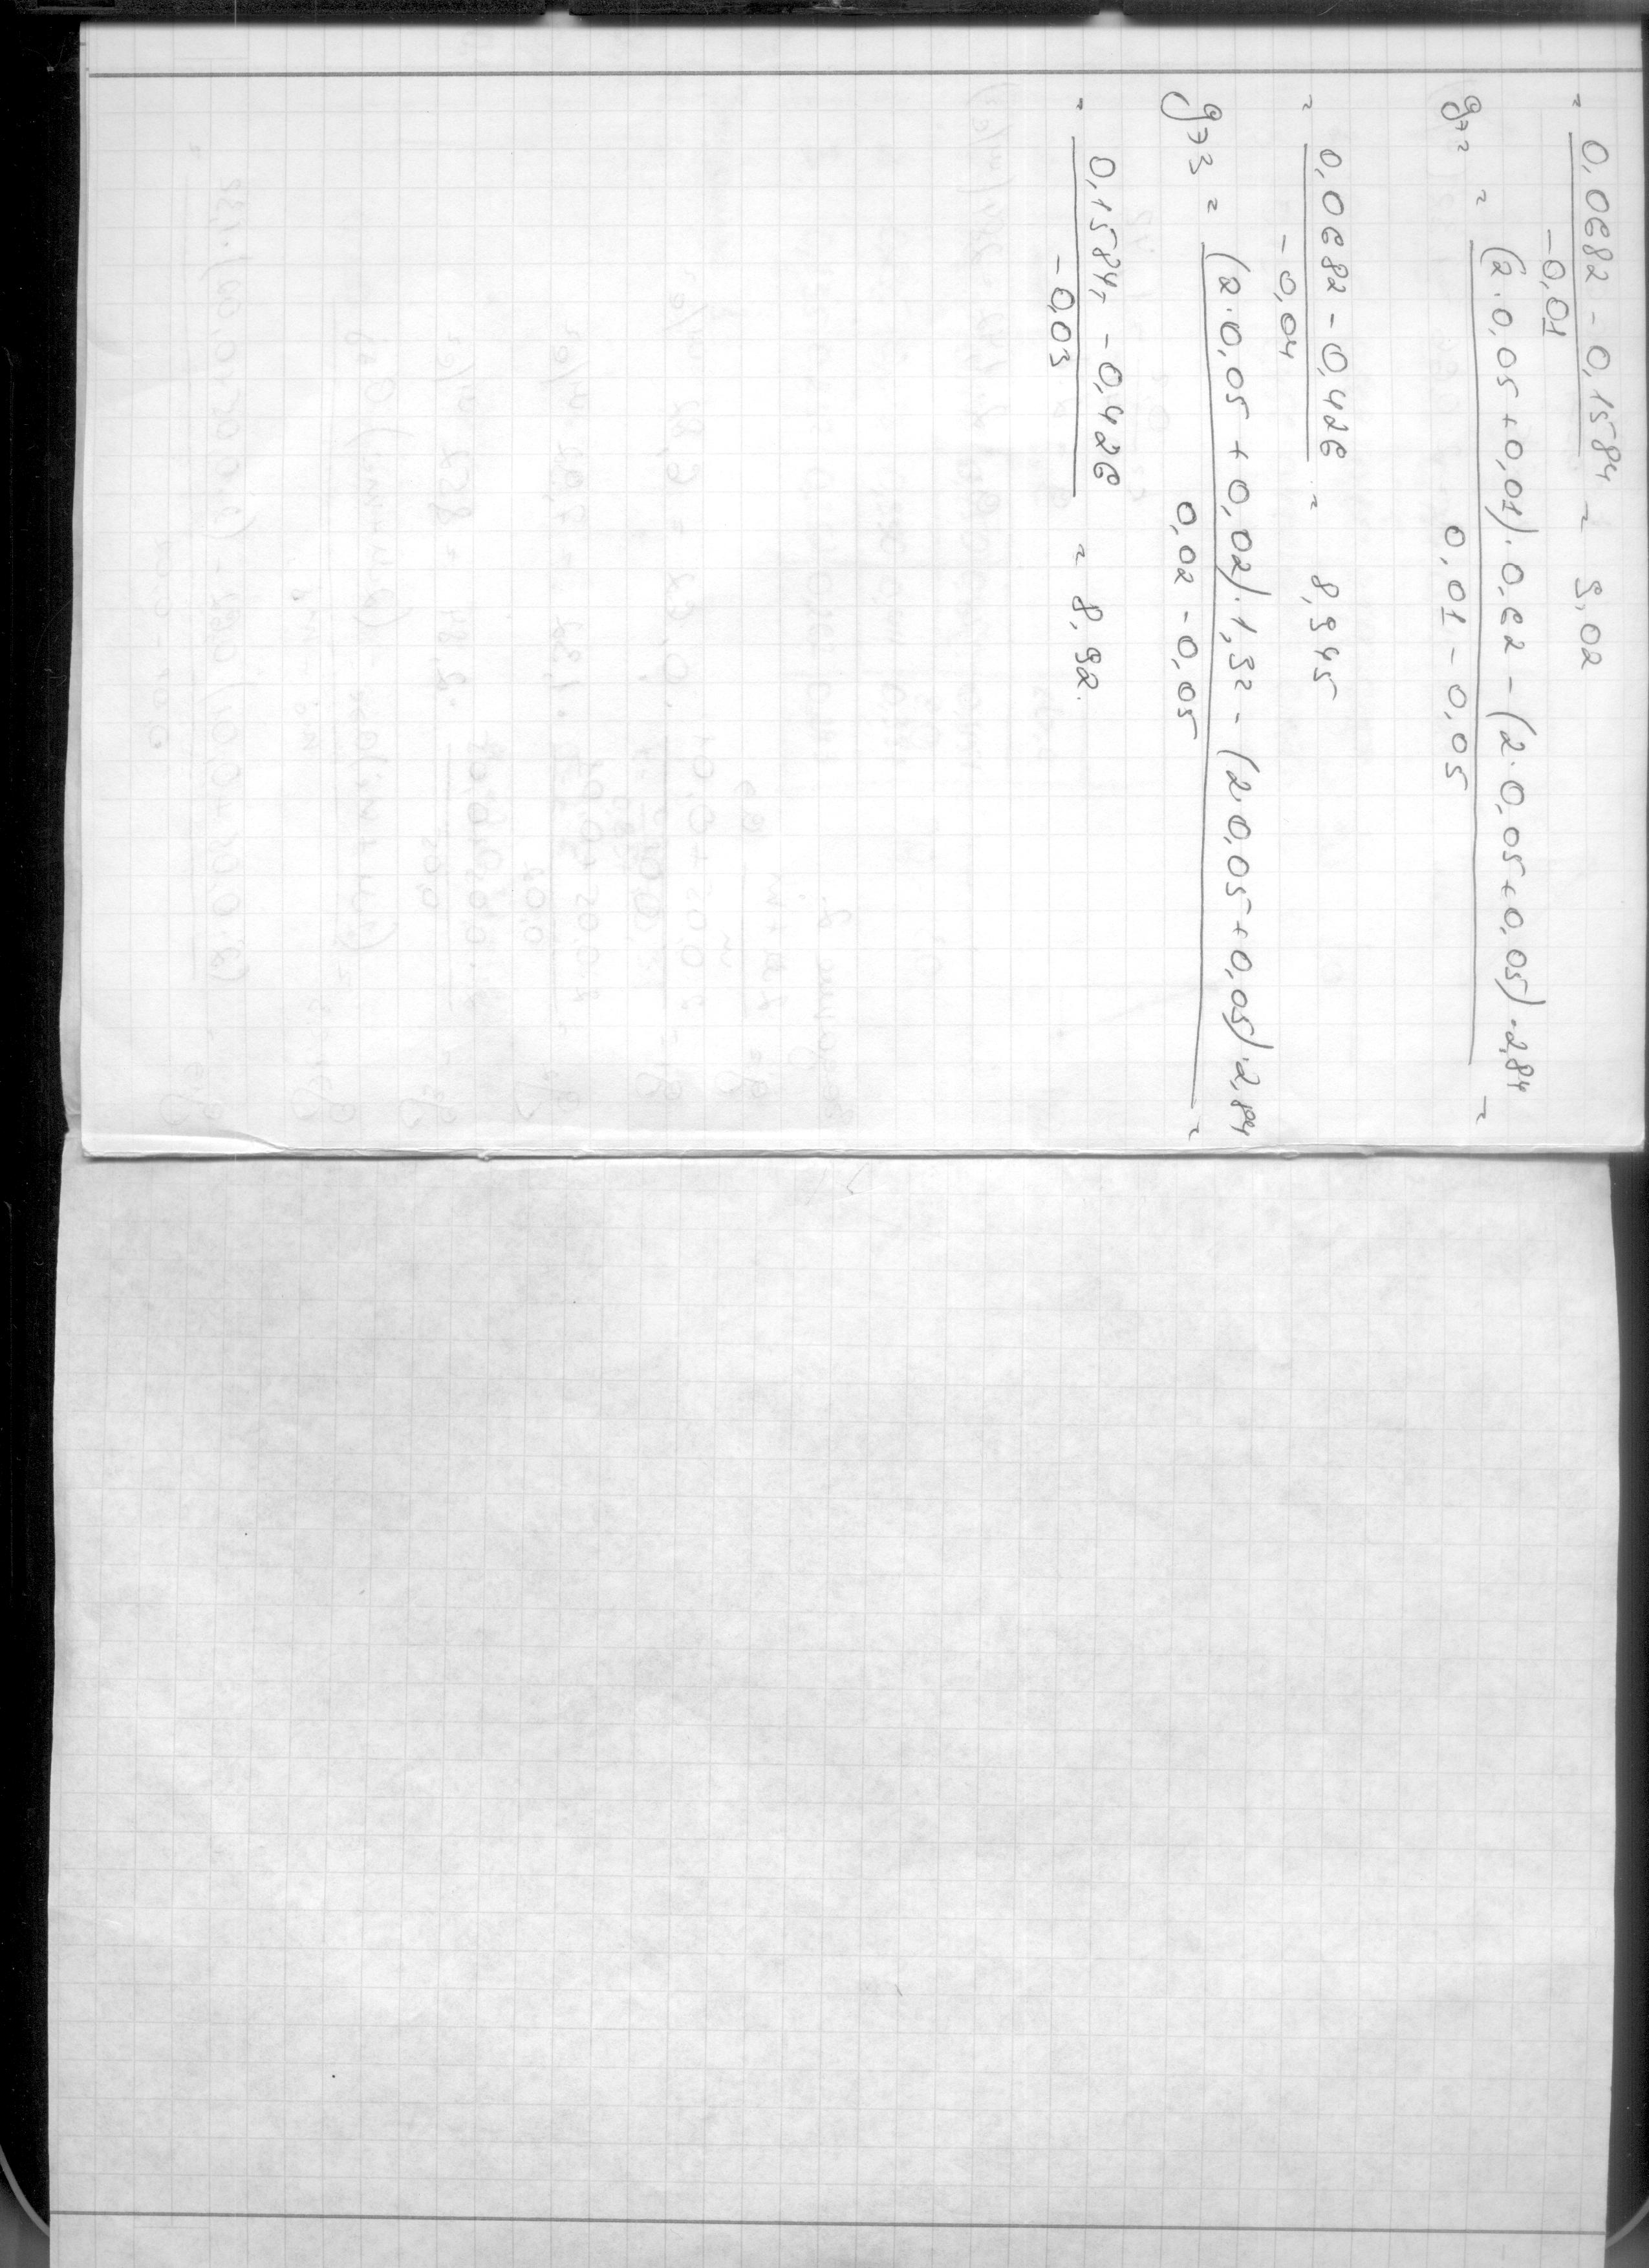 = 0,0682 - 0,1584 = 9,02
-0,01
g72 = (2·0,05+0,01)·0,62 - (2·0,05+0,05)·2,84 =
0,01 - 0,05
= 0,0682 - 0,426 = 8,945
-0,04
g73 = (2·0,05 + 0,02)·1,32 - (2·0,05+0,05)·2,84 =
0,02 - 0,05
= 0,1584 - 0,426 = 8,92.
-0,03